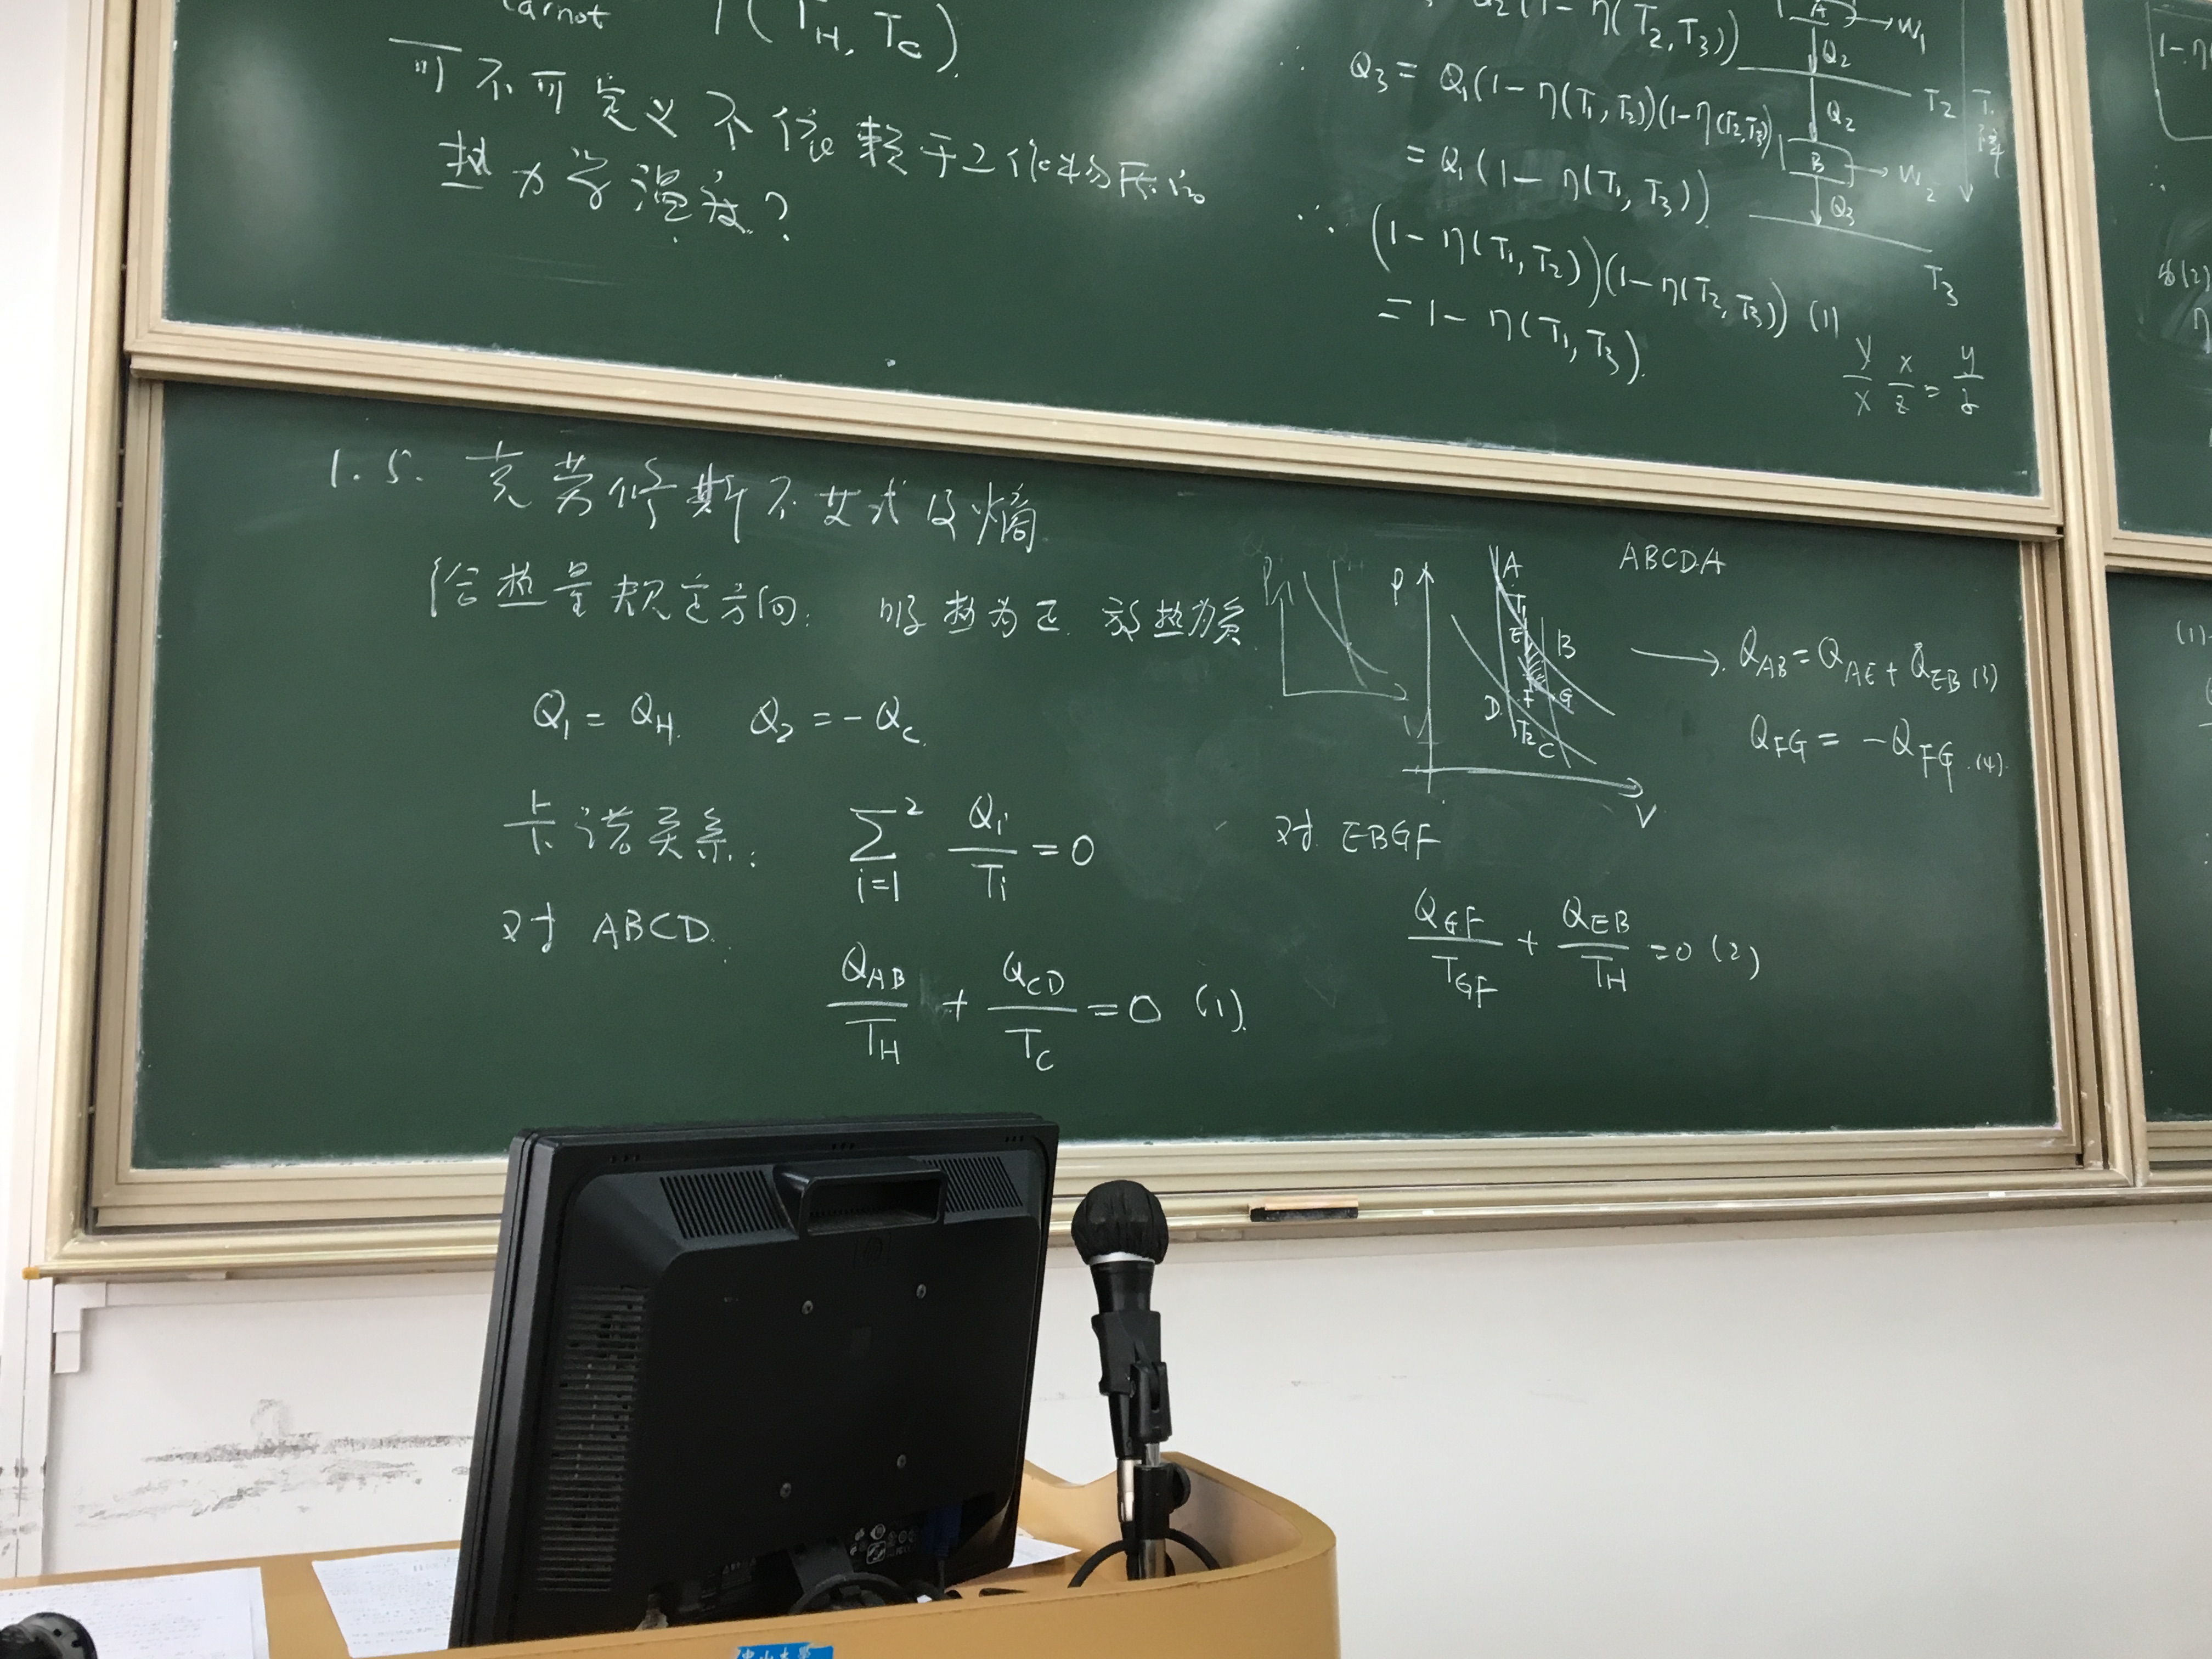 Carnot η(T_H, T_C).
可不可定义不依赖于工作物质的
热力学温度?
Q₂(1-η(T₂,T₃))
∴ Q₃ = Q₁(1-η(T₁,T₂))(1-η(T₂,T₃))
= Q₁(1-η(T₁,T₃))
∴ (1-η(T₁,T₂))(1-η(T₂,T₃)) (1)
= 1-η(T₁,T₃).
y/x x/z = y/z
A → W₁
Q₂
T₂
Q₂
B → W₂
Q₃
T₃
1.5. 克劳修斯不等式及熵
给热量规定方向: 吸热为正 放热为负
Q₁ = Q_H Q₂ = -Q_C
卡诺关系: ∑_{i=1}^{2} Q_i/T_i = 0
对 ABCD.
Q_AB/T_H + Q_CD/T_C = 0 (1).
P V
P A T₁ E B F G D T₂ C V
ABCDA
→ Q_AB = Q_AE + Q_EB (3)
Q_FG = -Q_FG (4)
对 EBGF
Q_GF/T_GF + Q_EB/T_H = 0 (2)
1-η
由(2)
η
(1)
中山大学